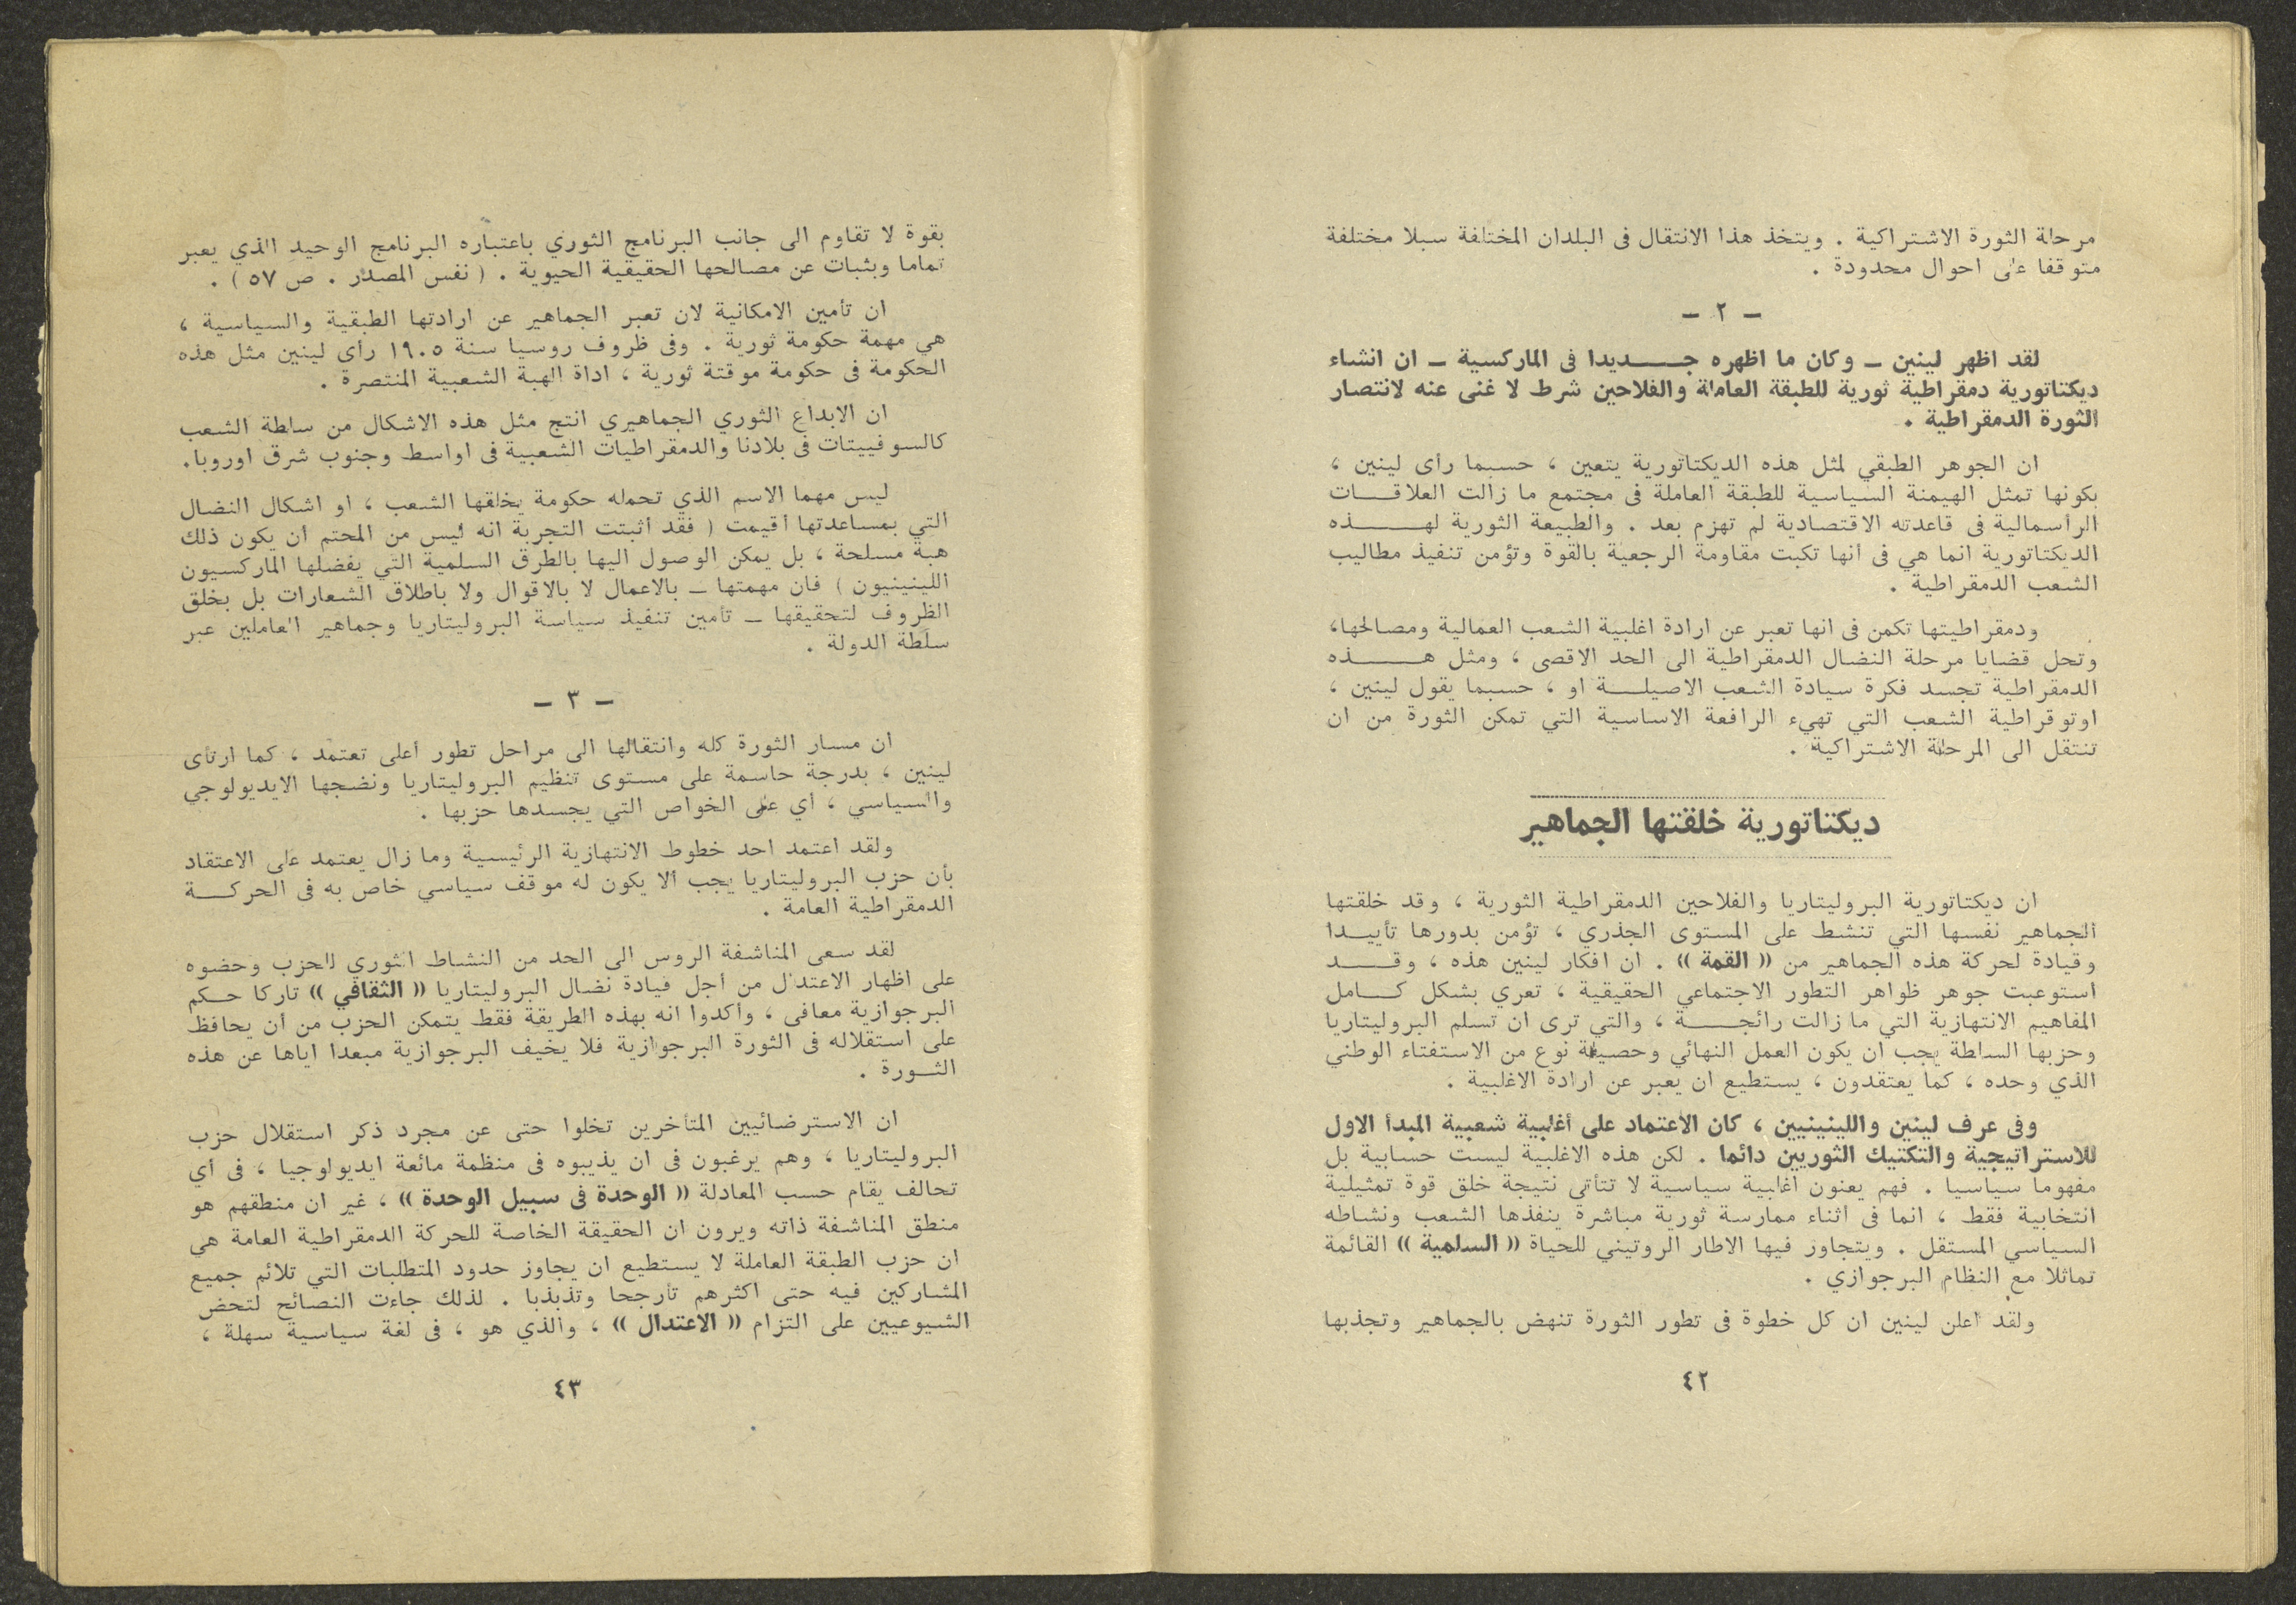 مرحلة الثورة الاشتراكية . ويتخذ هذا الانتقال فى البلدان المختلفة سبلا مختلفة
متوقفا على احوال محدودة .
ـ ٢ ـ
لقد اظهر لينين ـ وكان ما اظهره جـــديدا فى الماركسية ـ ان انشاء
ديكتاتورية دمقراطية ثورية للطبقة العاملة والفلاحين شرط لا غنى عنه لانتصار
الثورة الدمقراطية .
ان الجوهر الطبقي لمثل هذه الديكتاتورية يتعين ، حسبما رأى لينين ،
بكونها تمثل الهيمنة السياسية للطبقة العاملة فى مجتمع ما زالت العلاقــات
الرأسمالية فى قاعدته الاقتصادية لم تهزم بعد . والطبيعة الثورية لهـــذه
الديكتاتورية انما هي فى أنها تكبت مقاومة الرجعية بالقوة وتؤمن تنفيذ مطاليب
الشعب الدمقراطية .
ودمقراطيتها تكمن فى انها تعبر عن ارادة اغلبية الشعب العمالية ومصالحها،
وتحل قضايا مرحلة النضال الدمقراطية الى الحد الاقصى ، ومثل هـــذه
الدمقراطية تجسد فكرة سيادة الشعب الاصيلــة او ، حسبما يقول لينين ،
اوتوقراطية الشعب التي تهيء الرافعة الاساسية التي تمكن الثورة من ان
تنتقل الى المرحلة الاشتراكية .
ديكتاتورية خلقتها الجماهير
ان ديكتاتورية البروليتاريا والفلاحين الدمقراطية الثورية ، وقد خلقتها
الجماهير نفسها التي تنشط على المستوى الجذري ، تؤمن بدورها تأييـدا
وقيادة لحركة هذه الجماهير من « القمة » . ان افكار لينين هذه ، وقـــد
استوعبت جوهر ظواهر التطور الاجتماعي الحقيقية ، تعري بشكل كــامل
المفاهيم الانتهازية التي ما زالت رائجـــة ، والتي ترى ان تسلم البروليتاريا
وحزبها السلطة يجب ان يكون العمل النهائي وحصيلة نوع من الاستفتاء الوطني
الذي وحده ، كما يعتقدون ، يستطيع ان يعبر عن ارادة الاغلبية .
وفى عرف لينين واللينينيين ، كان الاعتماد على أغلبية شعبية المبدأ الاول
للاستراتيجية والتكتيك الثوريين دائما . لكن هذه الاغلبية ليست حسابية بل
مفهوما سياسيا . فهم يعنون اغلبية سياسية لا تتأتى نتيجة خلق قوة تمثيلية
انتخابية فقط ، انما فى اثناء ممارسة ثورية مباشرة ينفذها الشعب ونشاطه
السياسي المستقل . ويتجاوز فيها الاطار الروتيني للحياة « السلمية » القائمة
تماثلا مع النظام البرجوازي .
ولقد اعلن لينين ان كل خطوة فى تطور الثورة تنهض بالجماهير وتجذبها
٤٢
بقوة لا تقاوم الى جانب البرنامج الثوري باعتباره البرنامج الوحيد الذي يعبر
تماما وبثبات عن مصالحها الحقيقية الحيوية . ( نفس المصدر . ص ٥٧ ) .
ان تأمين الامكانية لان تعبر الجماهير عن ارادتها الطبقية والسياسية ،
هي مهمة حكومة ثورية . وفى ظروف روسيا سنة ١٩٠٥ رأى لينين مثل هذه
الحكومة فى حكومة موقتة ثورية ، اداة الهبة الشعبية المنتصرة .
ان الابداع الثوري الجماهيري انتج مثل هذه الاشكال من سلطة الشعب
كالسوفييتات فى بلادنا والدمقراطيات الشعبية فى اواسط وجنوب شرق اوروبا.
ليس مهما الاسم الذي تحمله حكومة يخلقها الشعب ، او اشكال النضال
التي بمساعدتها أقيمت ( فقد أثبتت التجربة انه ليس من المحتم أن يكون ذلك
هبة مسلحة ، بل يمكن الوصول اليها بالطرق السلمية التي يفضلها الماركسيون
اللينينيون ) فان مهمتها ـ بالاعمال لا بالاقوال ولا باطلاق الشعارات بل بخلق
الظروف لتحقيقها ـ تأمين تنفيذ سياسة البروليتاريا وجماهير العاملين عبر
سلطة الدولة .
ـ ٣ ـ
ان مسار الثورة كله وانتقالها الى مراحل تطور أعلى تعتمد ، كما ارتأى
لينين ، بدرجة حاسمة على مستوى تنظيم البروليتاريا ونضجها الايديولوجي
والسياسي ، أي على الخواص التي يجسدها حزبها .
ولقد اعتمد احد خطوط الانتهازية الرئيسية وما زال يعتمد على الاعتقاد
بأن حزب البروليتاريا يجب ألا يكون له موقف سياسي خاص به فى الحركــة
الدمقراطية العامة .
لقد سعى المناشفة الروس الى الحد من النشاط الثوري للحزب وحضوه
على اظهار الاعتدال من أجل قيادة نضال البروليتاريا « الثقافي » تاركا حــكم
البرجوازية معافى ، وأكدوا انه بهذه الطريقة فقط يتمكن الحزب من أن يحافظ
على استقلاله فى الثورة البرجوازية فلا يخيف البرجوازية مبعدا اياها عن هذه
الثــورة .
ان الاسترضائيين المتأخرين تخلوا حتى عن مجرد ذكر استقلال حزب
البروليتاريا ، وهم يرغبون فى ان يذيبوه فى منظمة مائعة ايديولوجيا ، فى أي
تحالف يقام حسب المعادلة « الوحدة فى سبيل الوحدة » ، غير ان منطقهم هو
منطق المناشفة ذاته ويرون ان الحقيقة الخاصة للحركة الدمقراطية العامة هي
ان حزب الطبقة العاملة لا يستطيع ان يجاوز حدود المتطلبات التي تلائم جميع
المشاركين فيه حتى اكثرهم تأرجحا وتذبذبا . لذلك جاءت النصائح لتحض
الشيوعيين على التزام « الاعتدال » ، والذي هو ، فى لغة سياسية سهلة ،
٤٣